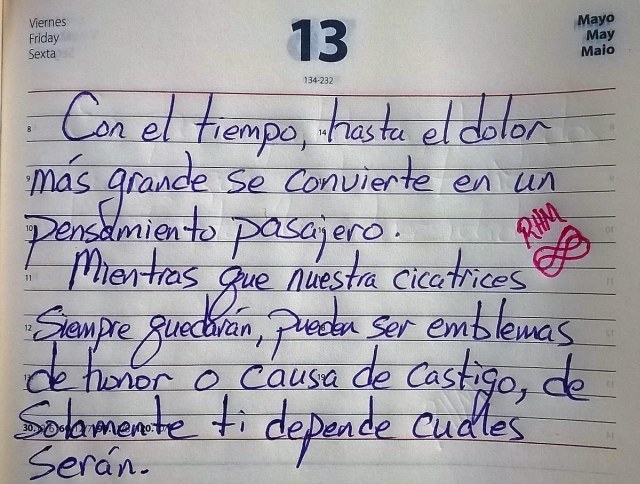 Viernes
Friday
Sexta
13
134-232
Mayo
May
Maio
Con el tiempo, hasta el dolor
más grande se convierte en un
pensamiento pasajero.
RHM
Mientras que nuestra cicatrices
Siempre quedarán, pueden ser emblemas
de honor o causa de castigo, de
Solamente ti depende cuales
serán.
8
9
10
11
12